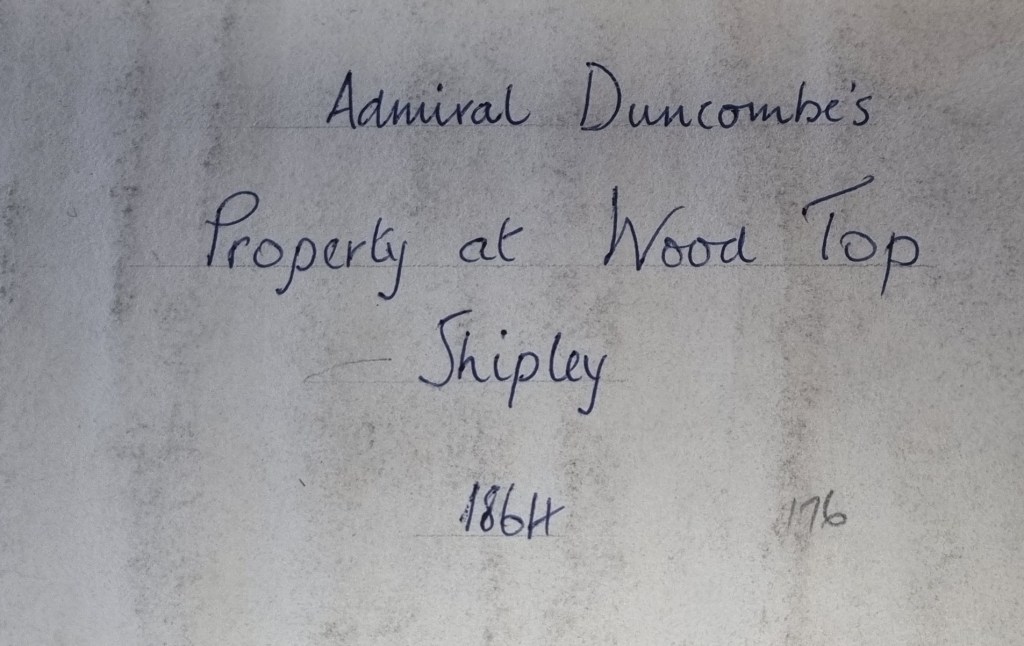 Admiral Duncombe's
Property at Wood Top
Shipley
1864 176